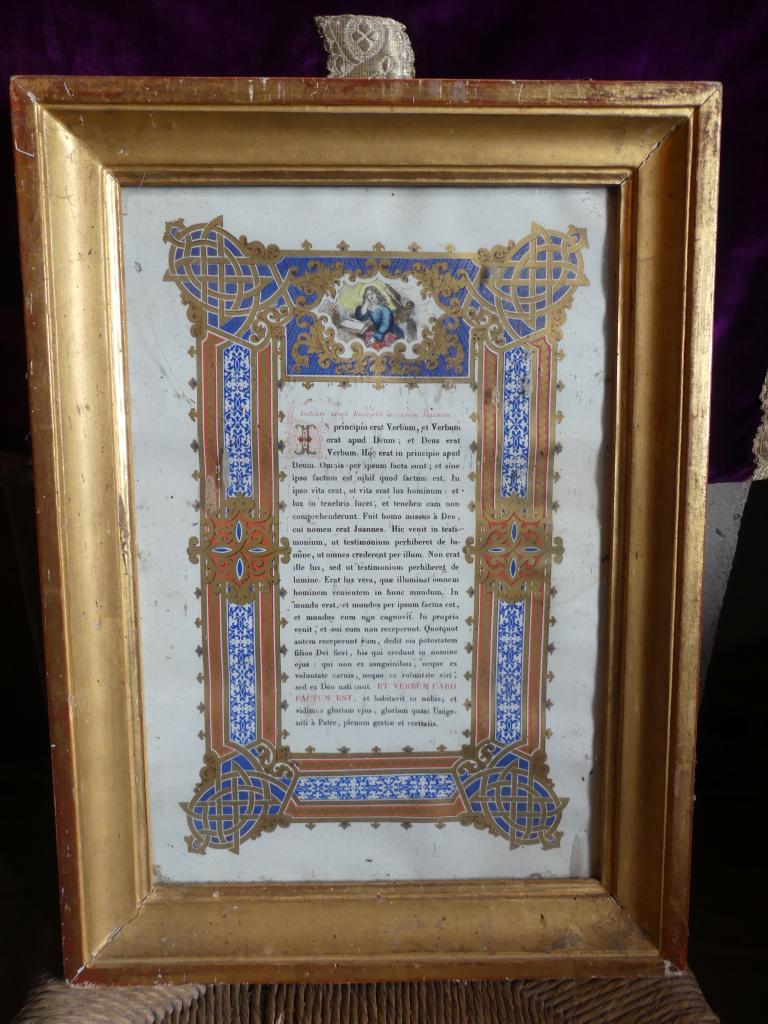 Initium sancti Evangelii secundum Joannem
IN principio erat Verbum, et Verbum
erat apud Deum ; et Deus erat
Verbum. Hoc erat in principio apud
Deum. Omnia per ipsum facta sunt ; et sine
ipso factum est nihil quod factum est. In
ipso vita erat, et vita erat lux hominum : et
lux in tenebris lucet, et tenebræ eam non
comprehenderunt. Fuit homo missus à Deo,
cui nomen erat Joannes. Hic venit in testi-
monium, ut testimonium perhiberet de lu-
mine, ut omnes crederent per illum. Non erat
ille lux, sed ut testimonium perhiberet de
lumine. Erat lux vera, quæ illuminat omnem
hominem venientem in hunc mundum. In
mundo erat, et mundus per ipsum factus est,
et mundus eum non cognovit. In propria
venit, et sui eum non receperunt. Quotquot
autem receperunt eum, dedit eis potestatem
filios Dei fieri, his qui credunt in nomine
ejus : qui non ex sanguinibus, neque ex
voluntate carnis, neque ex voluntate viri,
sed ex Deo nati sunt. ET VERBUM CARO
FACTUM EST, et habitavit in nobis; et
vidimus gloriam ejus, gloriam quasi Unige-
niti à Patre, plenum gratiæ et veritatis.